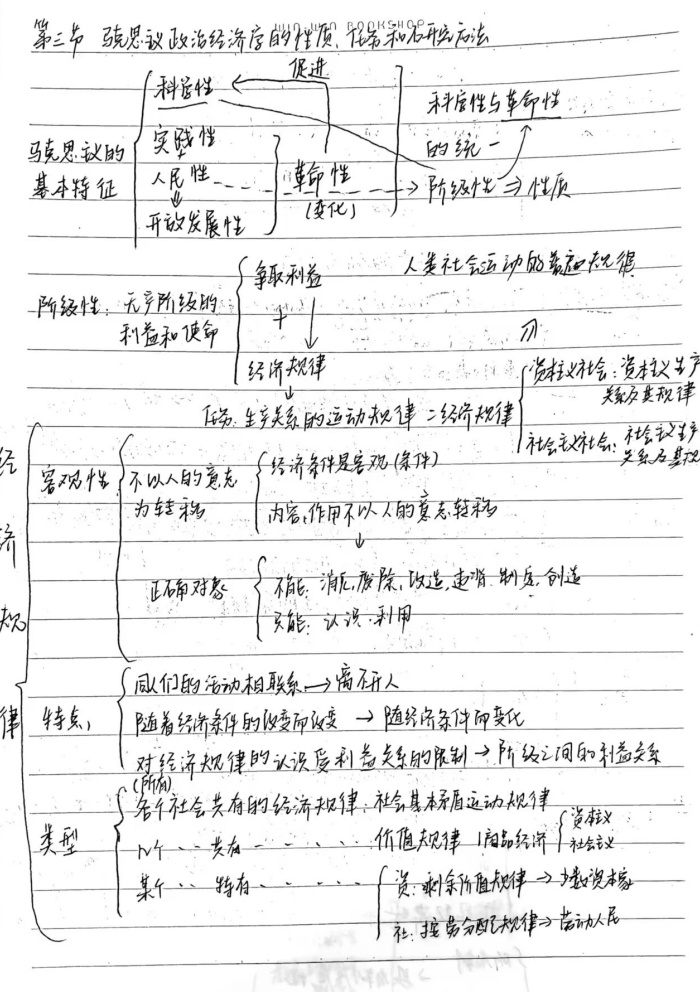 第三节 马克思主义政治经济学的性质、任务和研究方法
促进
科学性
科学性与革命性
实践性
的统一
马克思主义的
基本特征
人民性
革命性
阶级性 ⇒ 性质
(变化)
开放发展性
争取利益
人类社会运动的普遍规律
阶级性: 无产阶级的
利益和使命
+
经济规律
资本主义社会: 资本主义生产
关系及其规律
任务: 生产关系的运动规律 = 经济规律
社会主义社会: 社会主义生产
关系及其规
经济规律
客观性
不以人的意志
为转移
经济条件是客观(条件)
内容、作用不以人的意志转移
正确对象
不能: 消灭, 废除, 改造, 违背 制定, 创造
只能: 认识·利用
特点
同人们的活动相联系 → 离不开人
随着经济条件的改变而改变 → 随经济条件而变化
对经济规律的认识受利益关系的限制 → 阶级之间的利益关系
(所有)
各个社会共有的经济规律: 社会基本矛盾运动规律
类型
几个 ·· 共有 - - - - 价值规律 商品经济
资本主义
社会主义
某个 ·· 特有 - - - -
资: 剩余价值规律 → 少数资本家
社: 按劳分配规律 → 劳动人民